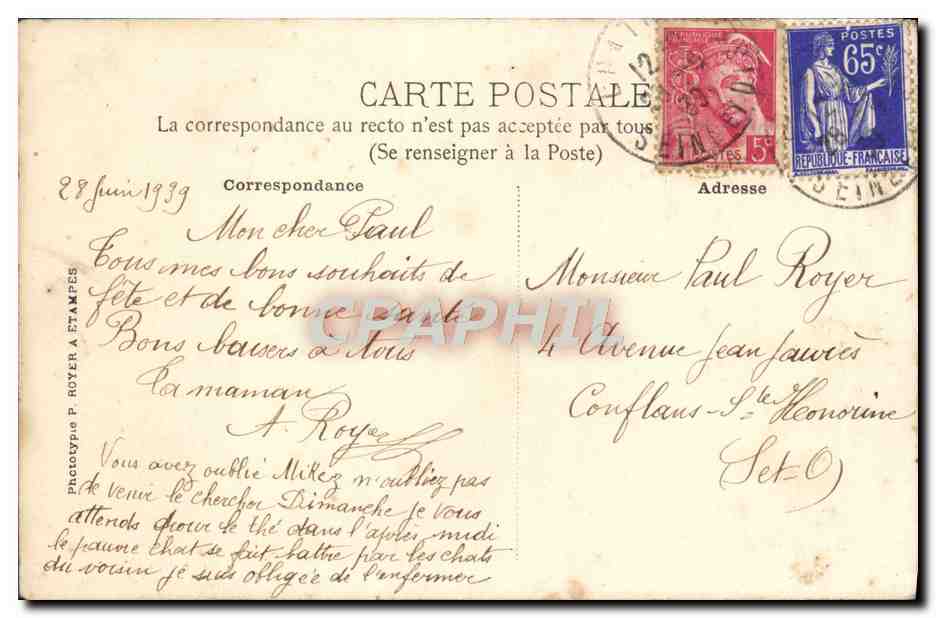 CARTE POSTALE
La correspondance au recto n'est pas acceptée par tous
(Se renseigner à la Poste)
POSTES
65c
REPUBLIQUE-FRANÇAISE
5c
SEINE
Correspondance
Adresse
28 Juin 1939
Mon cher Paul
Tous mes bons souhaits de
fête et de bonne Santé
Bons baisers à tous
Ta maman
A. Royer
Vous avez oublié Mikez n'oubliez pas
de venir le chercher Dimanche je vous
attends pour le thé dans l'après midi
le pauvre chat se fait battre par les chats
du voisin je suis obligée de l'enfermer
Monsieur Paul Royer
4 Avenue Jean Jaurès
Conflans-Ste Honorine
Set=O)
Phototypie P. ROYER A ETAMPES
CPAPHIL